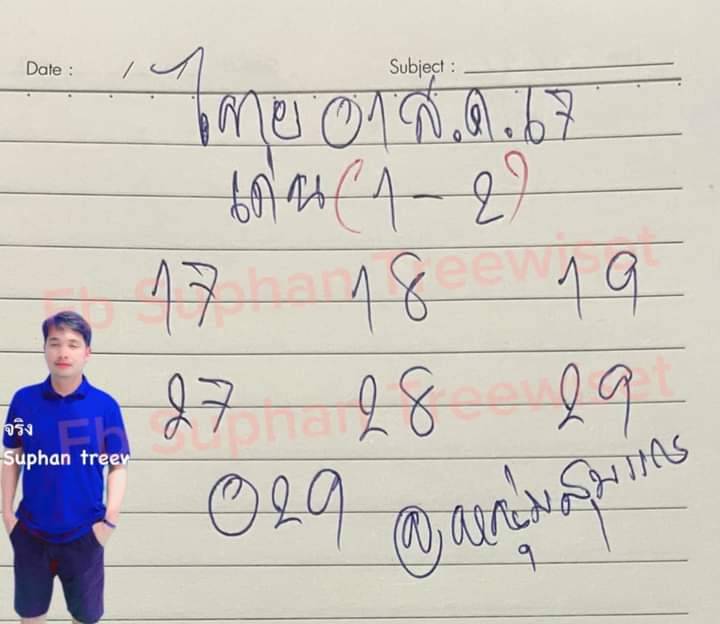 Date : / / Subject :
ไทย 01 ส.ค. 67
เด่น (1 - 2)
17 18 19
Fb Suphan Treewiset
27 28 29
Fb Suphan Treewiset
จริง
Suphan treev
029